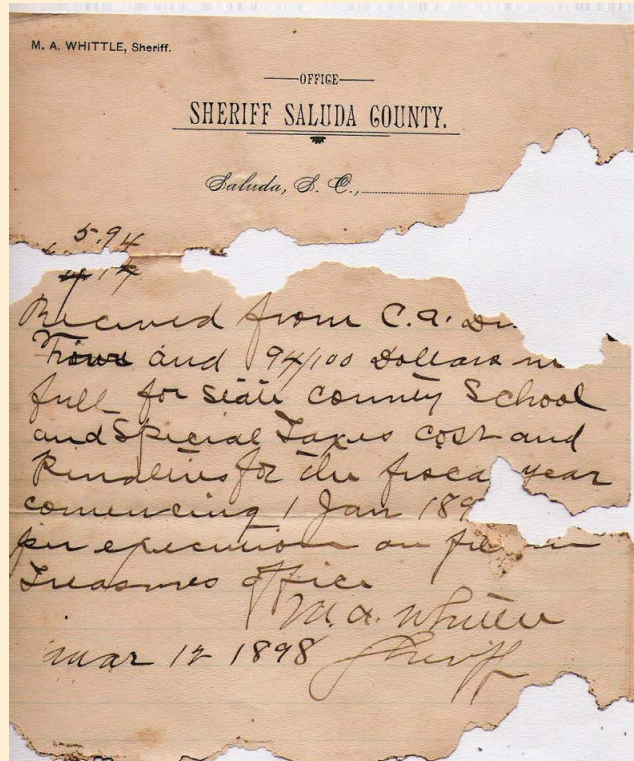 M. A. WHITTLE, Sheriff.
OFFICE
SHERIFF SALUDA COUNTY.
Saluda, S. C.,
5.94
Received from C. A.
and 94/100 Dollars in
full for State County School
and Special Taxes cost and
Penalties for the fiscal year
comencing 1 Jan 189
per execution on file in
Treasures office
M. A. Whittle
Mar 12 1898 Sheriff